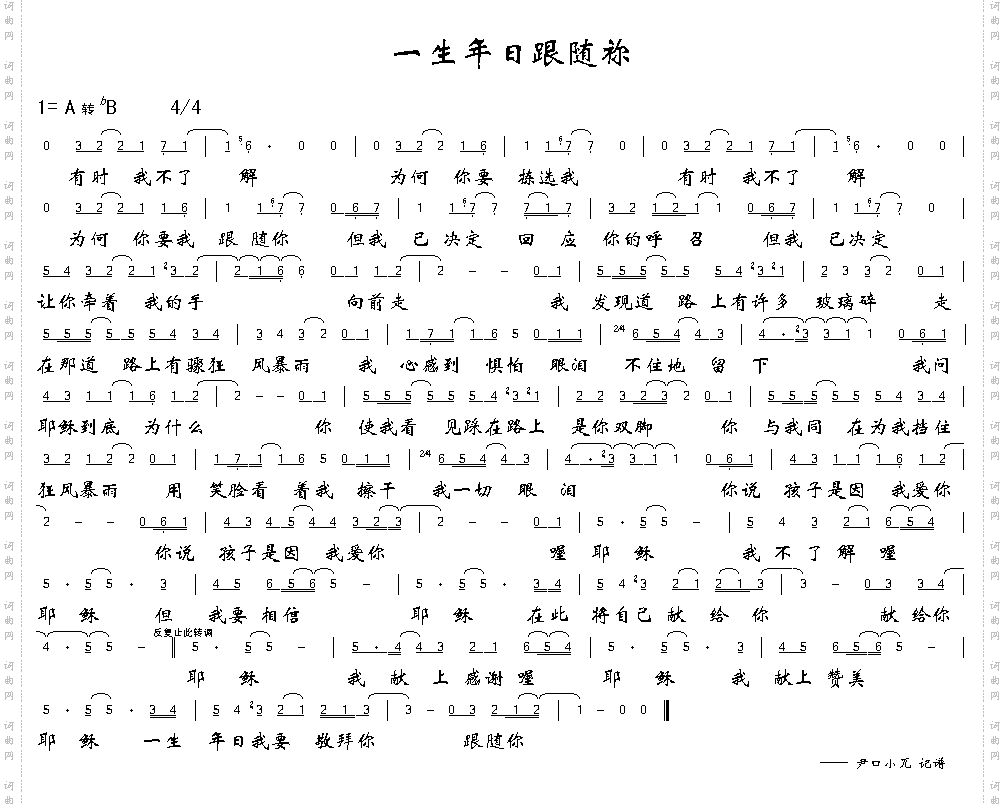 一生年日跟随祢
1= A 转 ♭B 4/4
0 3 2 2 1 7 1 | 1 5 6 · 0 0 | 0 3 2 2 1 6 | 1 1 6 7 7 0 | 0 3 2 2 1 7 1 | 1 5 6 · 0 0 |
有时 我不了 解 为何 你要 拣选我 有时 我不了 解
0 3 2 2 1 1 6 | 1 1 6 7 7 0 6 7 | 1 1 6 7 7 7 1 7 | 3 2 1 2 1 1 0 6 7 | 1 1 6 7 7 0 |
为何 你要我 跟 随你 但我 已 决定 回 应 你的呼 召 但我 已决定
5 4 3 2 2 1 2 3 2 | 2 1 6 6 0 1 1 2 | 2 - - 0 1 | 5 5 5 5 5 5 4 2 3 1 | 2 3 3 2 0 1
让你牵着 我的手 向前走 我 发现道 路 上有许多 玻璃碎 走
5 5 5 5 5 5 4 3 4 | 3 4 3 2 0 1 | 1 7 1 1 6 5 0 1 1 | 2/4 6 5 4 4 3 | 4 · 2 3 3 1 1 0 6 1 |
在那道 路上有骤狂 风暴雨 我 心感到 惧怕 眼泪 不住地 留 下 我问
4 3 1 1 1 6 1 2 | 2 - - 0 1 | 5 5 5 5 5 5 4 2 3 1 | 2 2 3 2 3 2 0 1 | 5 5 5 5 5 5 4 3 4 |
耶稣到底 为什么 你 使我看 见踩在路上 是你双脚 你 与我同 在为我挡住
3 2 1 2 2 0 1 | 1 7 1 1 6 5 0 1 1 | 2/4 6 5 4 4 3 | 4 · 2 3 3 1 1 0 6 1 | 4 3 1 1 1 6 1 2
狂风暴雨 用 笑脸看 着我 擦干 我一切 眼 泪 你说 孩子是因 我爱你
2 - - 0 6 1 | 4 3 4 5 4 4 3 2 3 | 2 - - 0 1 | 5 · 5 5 - | 5 4 3 2 1 6 5 4
你说 孩子是因 我爱你 喔 耶 稣 我 不 了 解 喔
5 · 5 5 · 3 | 4 5 6 5 6 5 - | 5 · 5 5 · 3 4 | 5 4 2 3 2 1 2 1 3 | 3 - 0 3 3 4
耶 稣 但 我要 相信 耶 稣 在此 将自己 献 给 你 献 给你
反复止此转调
4 · 5 5 - ‖ 5 · 5 5 - | 5 · 4 4 3 2 1 6 5 4 | 5 · 5 5 · 3 | 4 5 6 5 6 5 - |
耶 稣 我 献 上 感谢 喔 耶 稣 我 献上 赞美
5 · 5 5 · 3 4 | 5 4 2 3 2 1 2 1 3 | 3 - 0 3 2 1 2 | 1 - 0 0 ‖
耶 稣 一生 年日我要 敬拜你 跟随你
—— 尹口小兀 记谱
词曲网